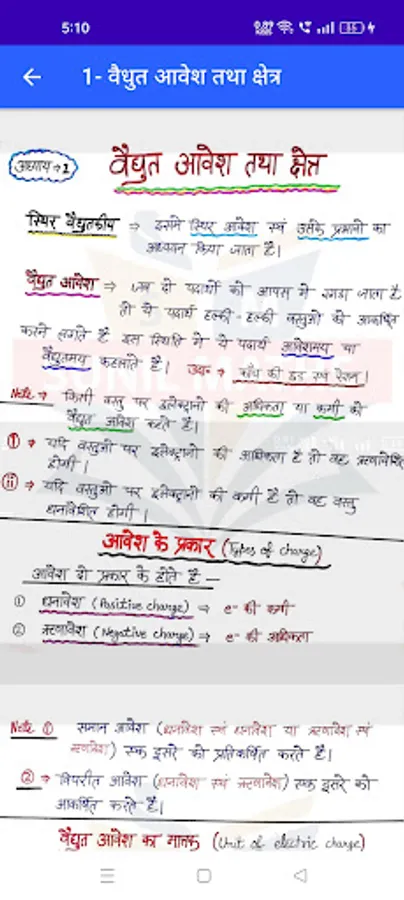 5:10
1- वैधुत आवेश तथा क्षेत्र
अध्याय → 1
वैद्युत आवेश तथा क्षेत्र
स्थिर वैद्युतकीय ⇒ इसमे स्थिर आवेश एवं उसके प्रभावो का
अध्ययन किया जाता है।
वैद्युत आवेश ⇒ जब दो पदार्थो को आपस मे रगडा जाता है
तो ये पदार्थ हल्की हल्की वस्तुओ को आकर्षित
करने लगते है इस स्थिति मे ये पदार्थ आवेशमय या
वैद्युतमय कहलाते है। उदा० → काँच की छड एवं रेशम।
Note → किसी वस्तु पर इलेक्ट्रानो की अधिकता या कमी को
वैद्युत आवेश कहते है।
(i) → यदि वस्तुओ पर इलेक्ट्रानो की अधिकता है तो वह ऋणावेशित
होगी।
(ii) → यदि वस्तुओ पर इलेक्ट्रानो की कमी है तो वह वस्तु
धनावेशित होगी।
आवेश के प्रकार (Types of charge)
आवेश दो प्रकार के होते है —
① धनावेश (Positive charge) ⇒ e⁻ की कमी
② ऋणावेश (Negative charge) ⇒ e⁻ की अधिकता
Note ① समान आवेश (धनावेश एवं धनावेश या ऋणावेश एवं
ऋणावेश) एक दूसरे को प्रतिकर्षित करते है।
② → विपरीत आवेश (धनावेश एवं ऋणावेश) एक दूसरे को
आकर्षित करते है।
वैद्युत आवेश का मात्रक (Unit of electric charge)